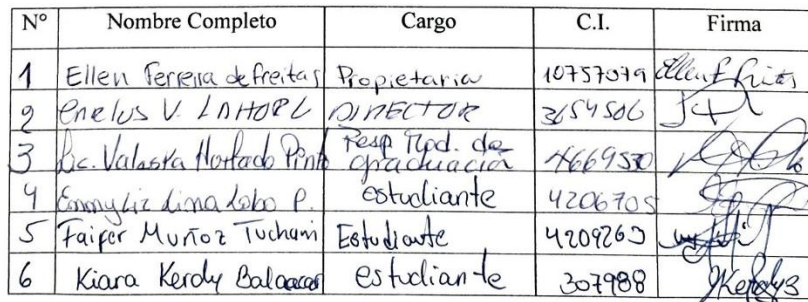 N° Nombre Completo Cargo C.I. Firma
1 Ellen Ferreira de freitas Propietaria 10757079 Ellen F freitas
2 V. DIRECTOR 3654506
3 Lic. Valaska Hurtado Pinto Resp Mod. de graduación 4669530
4 Lima Lobo P. estudiante 4206705
5 Faifer Muñoz Tuchani Estudiante 4209263
6 Kiara Kerdy estudiante 307988